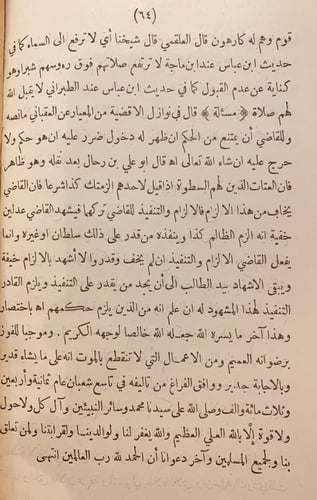 (٦٤)
قوم وهم له كارهون قال العلقمي قال شيخنا أي لا ترفع الى السماء كما في
حديث ابن عباس عند ابن ماجة لا ترتفع صلاتهم فوق رءوسهم شبرا وهو
كناية عن عدم القبول كما في حديث ابن عباس عند الطبراني لا يقبل الله
لهم صلاة ﴿ مسئلة ﴾ قال في نوازل الاقضية من المعيار عن العقباني مانصه
وللقاضي أن يمتنع من الحكم ان ظهر له دخول ضرر عليه ان هو حكم ولا
حرج عليه ان شاء الله تعالى اه قال ابو علي بن رحال بعد نقله وهو ظاهر
فان العتات الذين لهم السطوة اذا قيل لاحدهم الزمتك كذا شرعا فان القاضي
يخاف من هذا الالزام فالالزام والتنفيذ للقاضي تركها فيشهد القاضي عدلين
خفية انه الزم الظالم كذا وينفذه من قدر على ذلك سلطان اوغيره وانما
يفعل القاضي الالزام والتنفيذ ان لم يخف وقدر والا أشهد بالالزام خيفة
ويبقى الاشهاد بيد الطالب الى أن يجد من يقدر على التنفيذ ويلزم القادر
التنفيذ لهذا المشهود له ان علم انه من الذين يلزم حكمهم اه باختصار
وهذا آخر ما يسره الله جعله الله خالصا لوجهه الكريم . وموجبا للفوز
برضوانه العميم ومن الاعمال التي لا تنقطع بالموت انه على ما يشاء قدير
وبالاجابة جدير ووافق الفراغ من تاليفه في تاسع شعبان عام ثمانية وأربعين
وثلاث مائة والف وصلى الله على سيدنا محمد وسائر النبيئين وآل كل ولا حول
ولا قوة إلا بالله العلي العظيم والله يغفر لنا ولوالدينا ولقرابتنا ولمن تعلق
بنا ولجميع المسلمين وآخر دعوانا أن الحمد لله رب العالمين انتهى